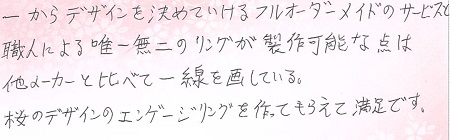 一からデザインを決めていけるフルオーダーメイドのサービスと
職人による唯一無二のリングが製作可能な点は
他メーカーと比べて一線を画している。
桜のデザインのエンゲージリングを作ってもらえて満足です。